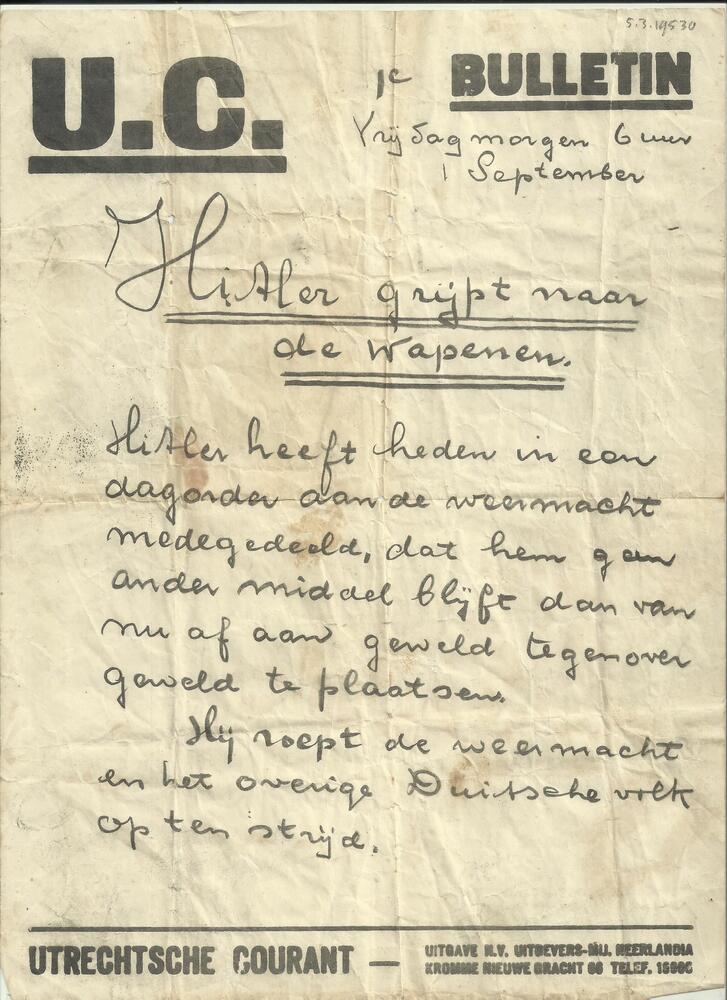 5.3.19530
U.C.
1e BULLETIN
Vrijdagmorgen 6 uur
1 September
Hitler grijpt naar
de wapenen.
Hitler heeft heden in een
dagorder aan de weermacht
medegedeeld, dat hem geen
ander middel blijft dan van
nu af aan geweld tegenover
geweld te plaatsen.
Hij roept de weermacht
en het overige Duitsche volk
op ten strijd.
UTRECHTSCHE COURANT —
UITGAVE N.V. UITGEVERS-MIJ. NEERLANDIA
KROMME NIEUWE GRACHT TELEF.